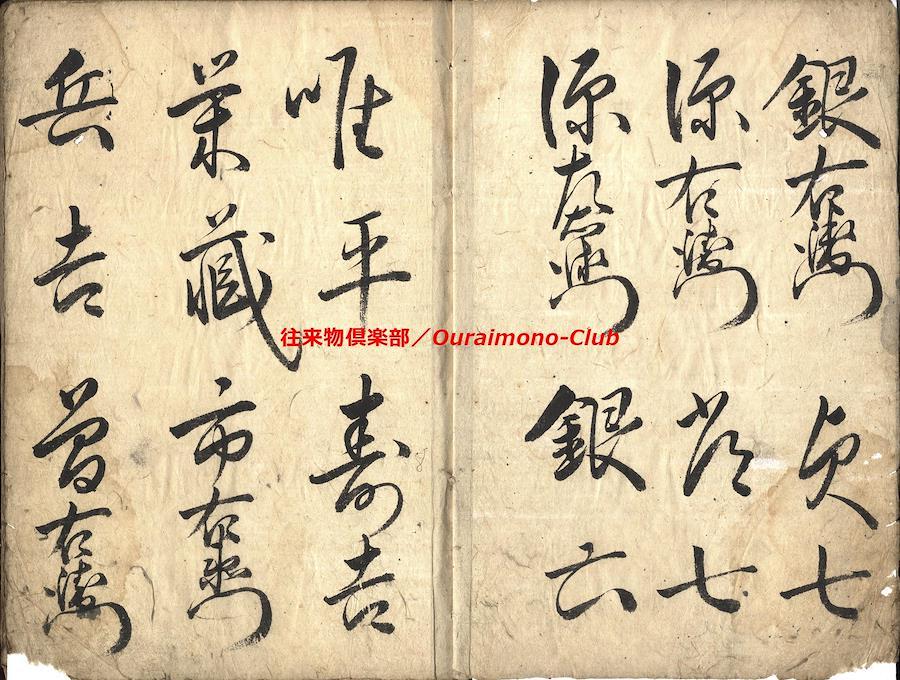 銀右衛門 貞七
源右衛門 七
源左衛門 銀六
唯平 寿吉
藏 市右衛門
兵吉 曽右衛門
往来物倶楽部／Ouraimono-Club